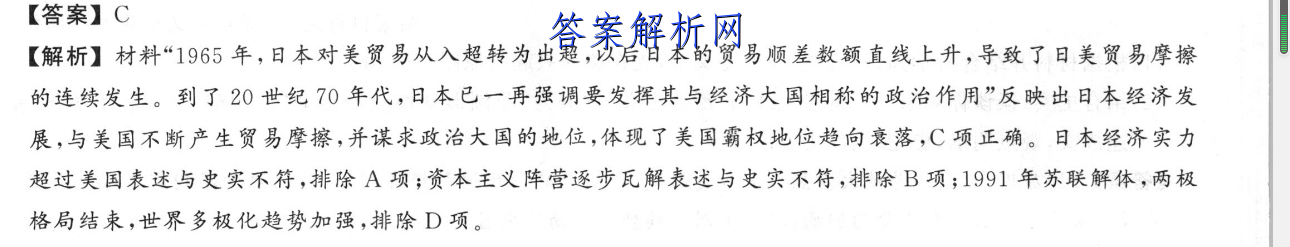 【答案】C
答案解析网
【解析】材料“1965年,日本对美贸易从入超转为出超,以后日本的贸易顺差数额直线上升,导致了日美贸易摩擦
的连续发生。到了20世纪70年代,日本已一再强调要发挥其与经济大国相称的政治作用”反映出日本经济发
展,与美国不断产生贸易摩擦,并谋求政治大国的地位,体现了美国霸权地位趋向衰落,C项正确。日本经济实力
超过美国表述与史实不符,排除A项;资本主义阵营逐步瓦解表述与史实不符,排除B项;1991年苏联解体,两极
格局结束,世界多极化趋势加强,排除D项。